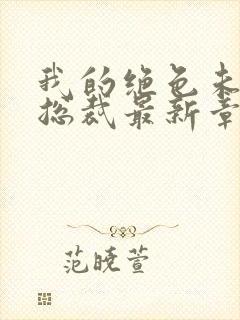 我的绝色未
总裁最新章
范晓萱